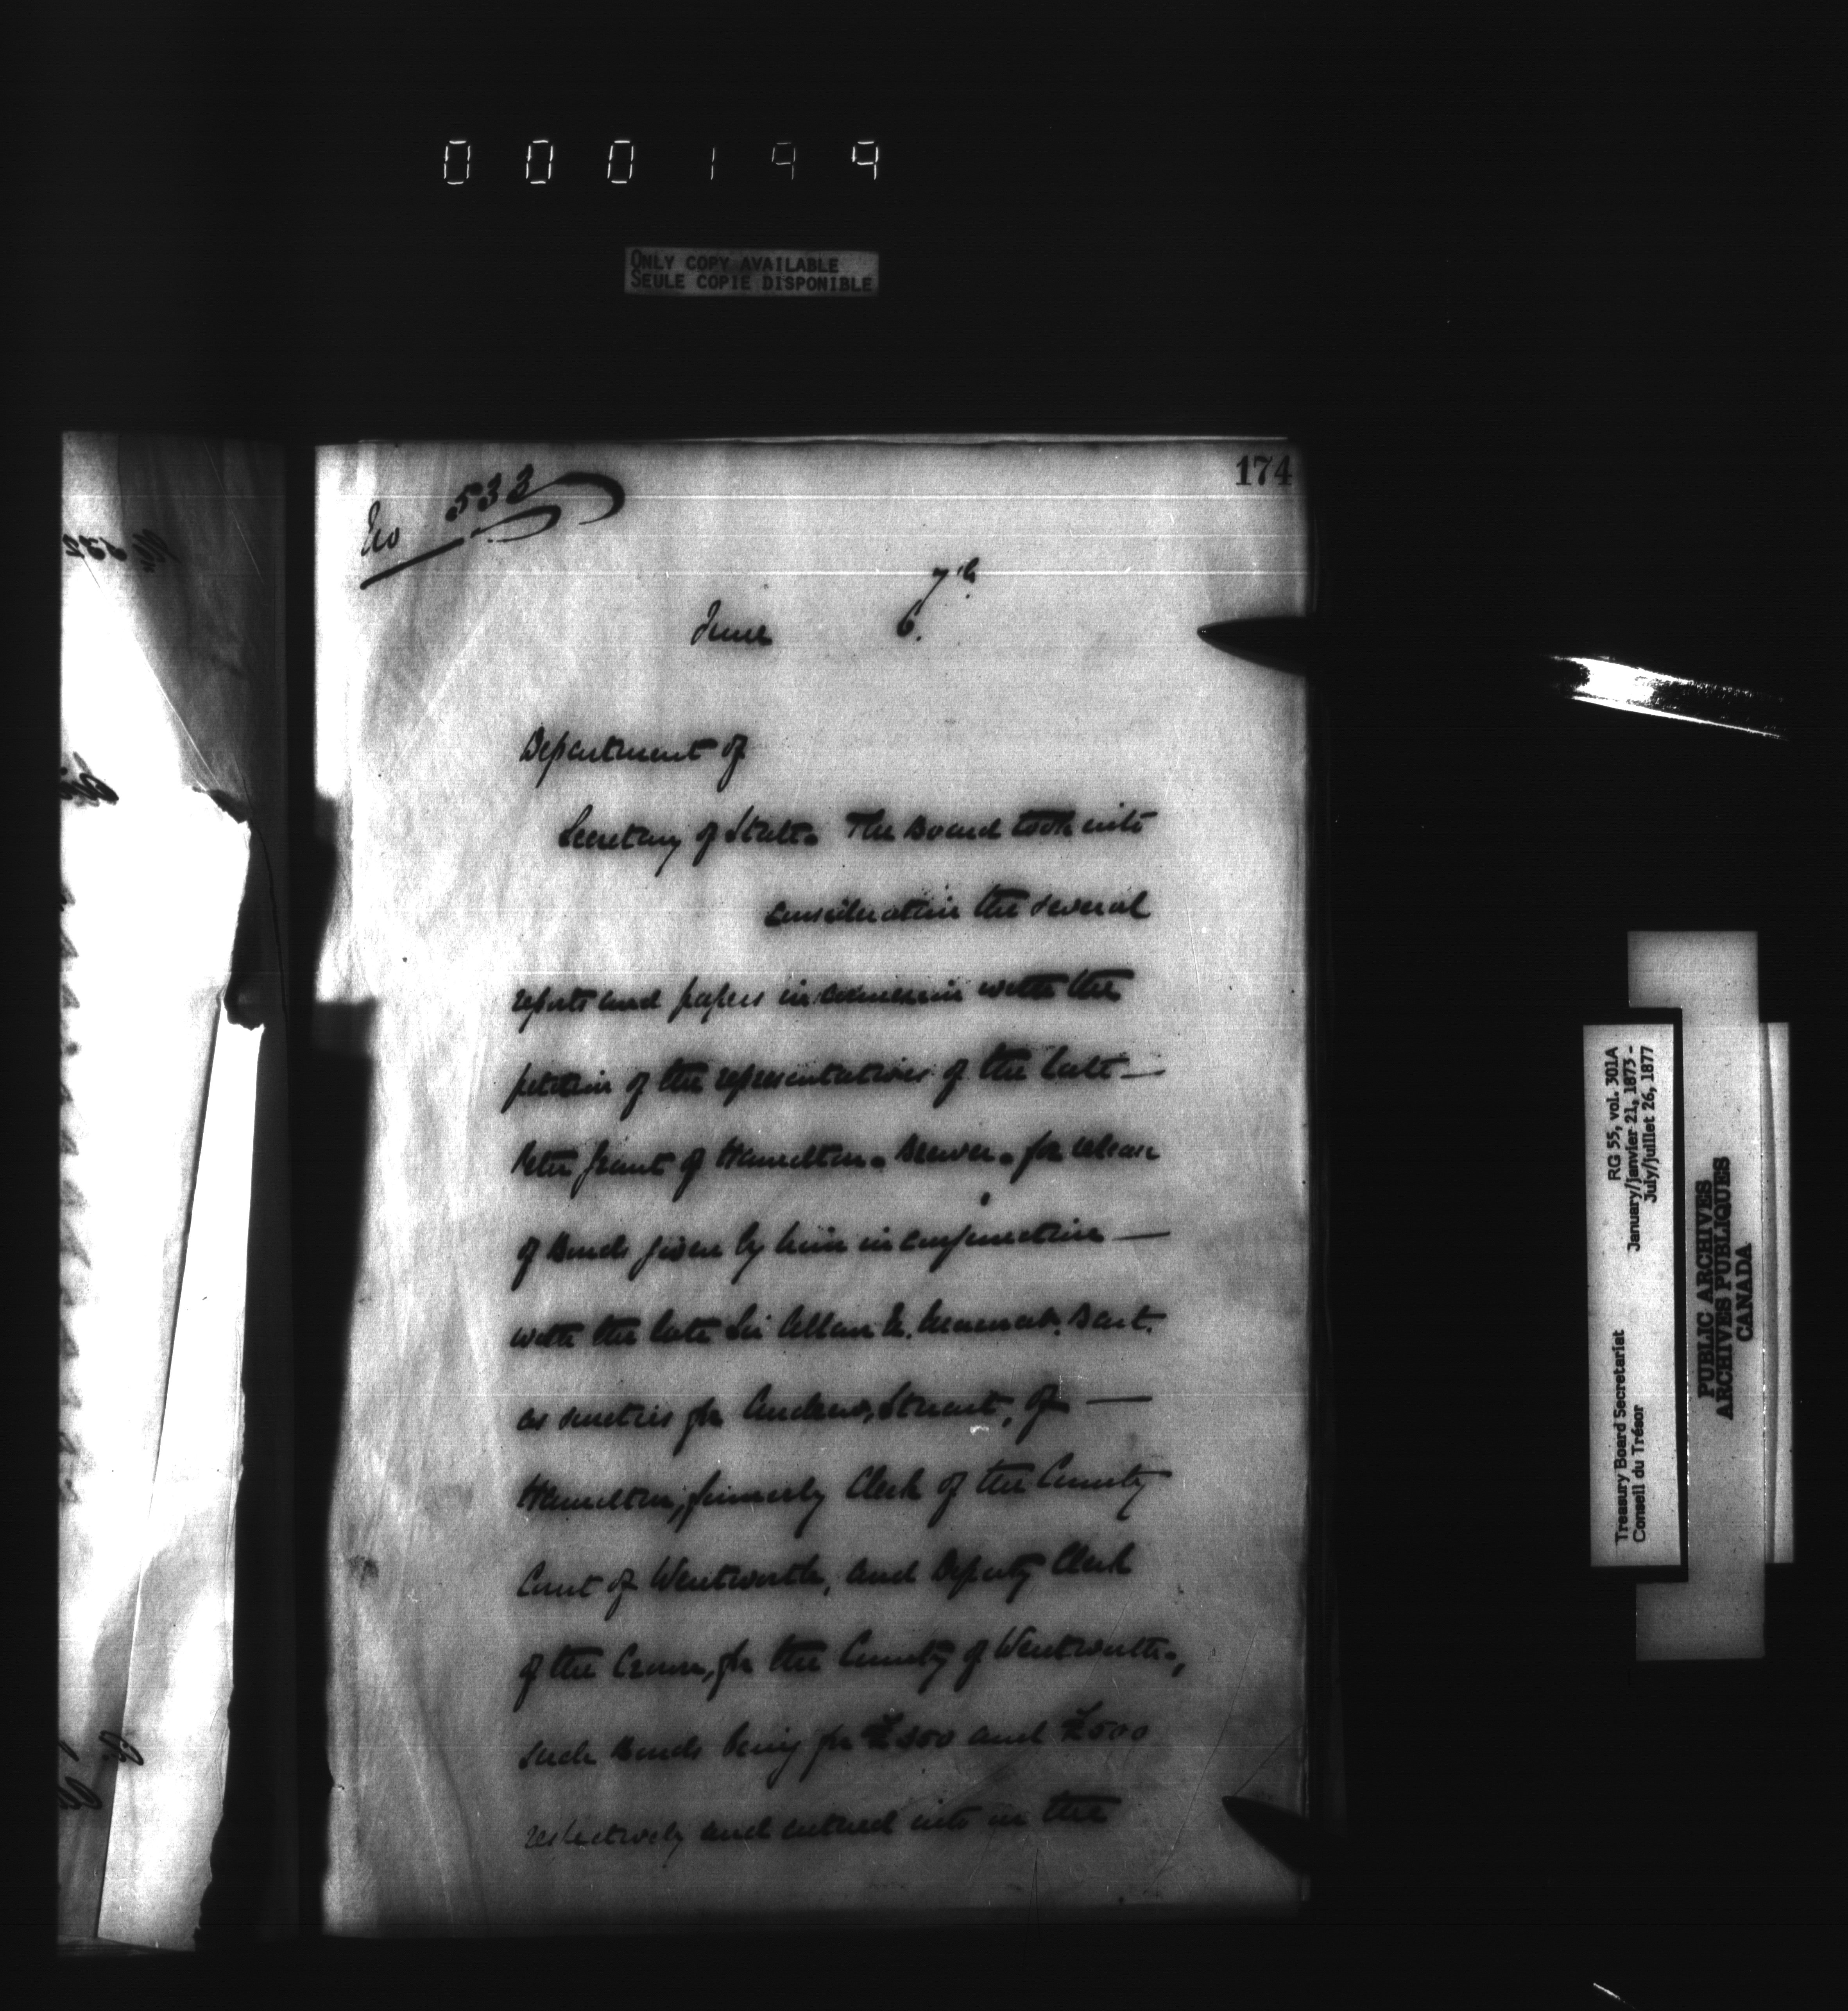 000199
ONLY COPY AVAILABLE
SEULE COPIE DISPONIBLE
174
No 533
7th
June 6.
Department of
Secretary of State. The Board took into
consideration the several
reports and papers in connexion with the
petition of the representatives of the late —
Peter Grant of Hamilton. Brewer. for release
of Bonds given by him in conjunction —
with the late Sir Allan N. Macnab. Bart.
as sureties for Andrew Stuart, of —
Hamilton, formerly Clerk of the County
Court of Wentworth, and Deputy Clerk
of the Crown, for the County of Wentworth,
such Bonds being for and £500
respectively and entered into in the
RG 55, vol. 301A
January/janvier 21, 1873 -
July/juillet 26, 1877
Treasury Board Secretariat
Conseil du Trésor
PUBLIC ARCHIVES
ARCHIVES PUBLIQUES
CANADA